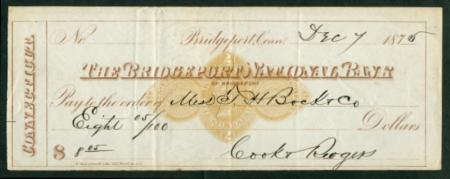 No. Bridgeport, Conn. Dec 7 1875
THE BRIDGEPORT NATIONAL BANK
OF BRIDGEPORT
Pay to the order of Mess T. H. & Co
Eight 05/100 Dollars
$ 8 05
Cook & Rogers